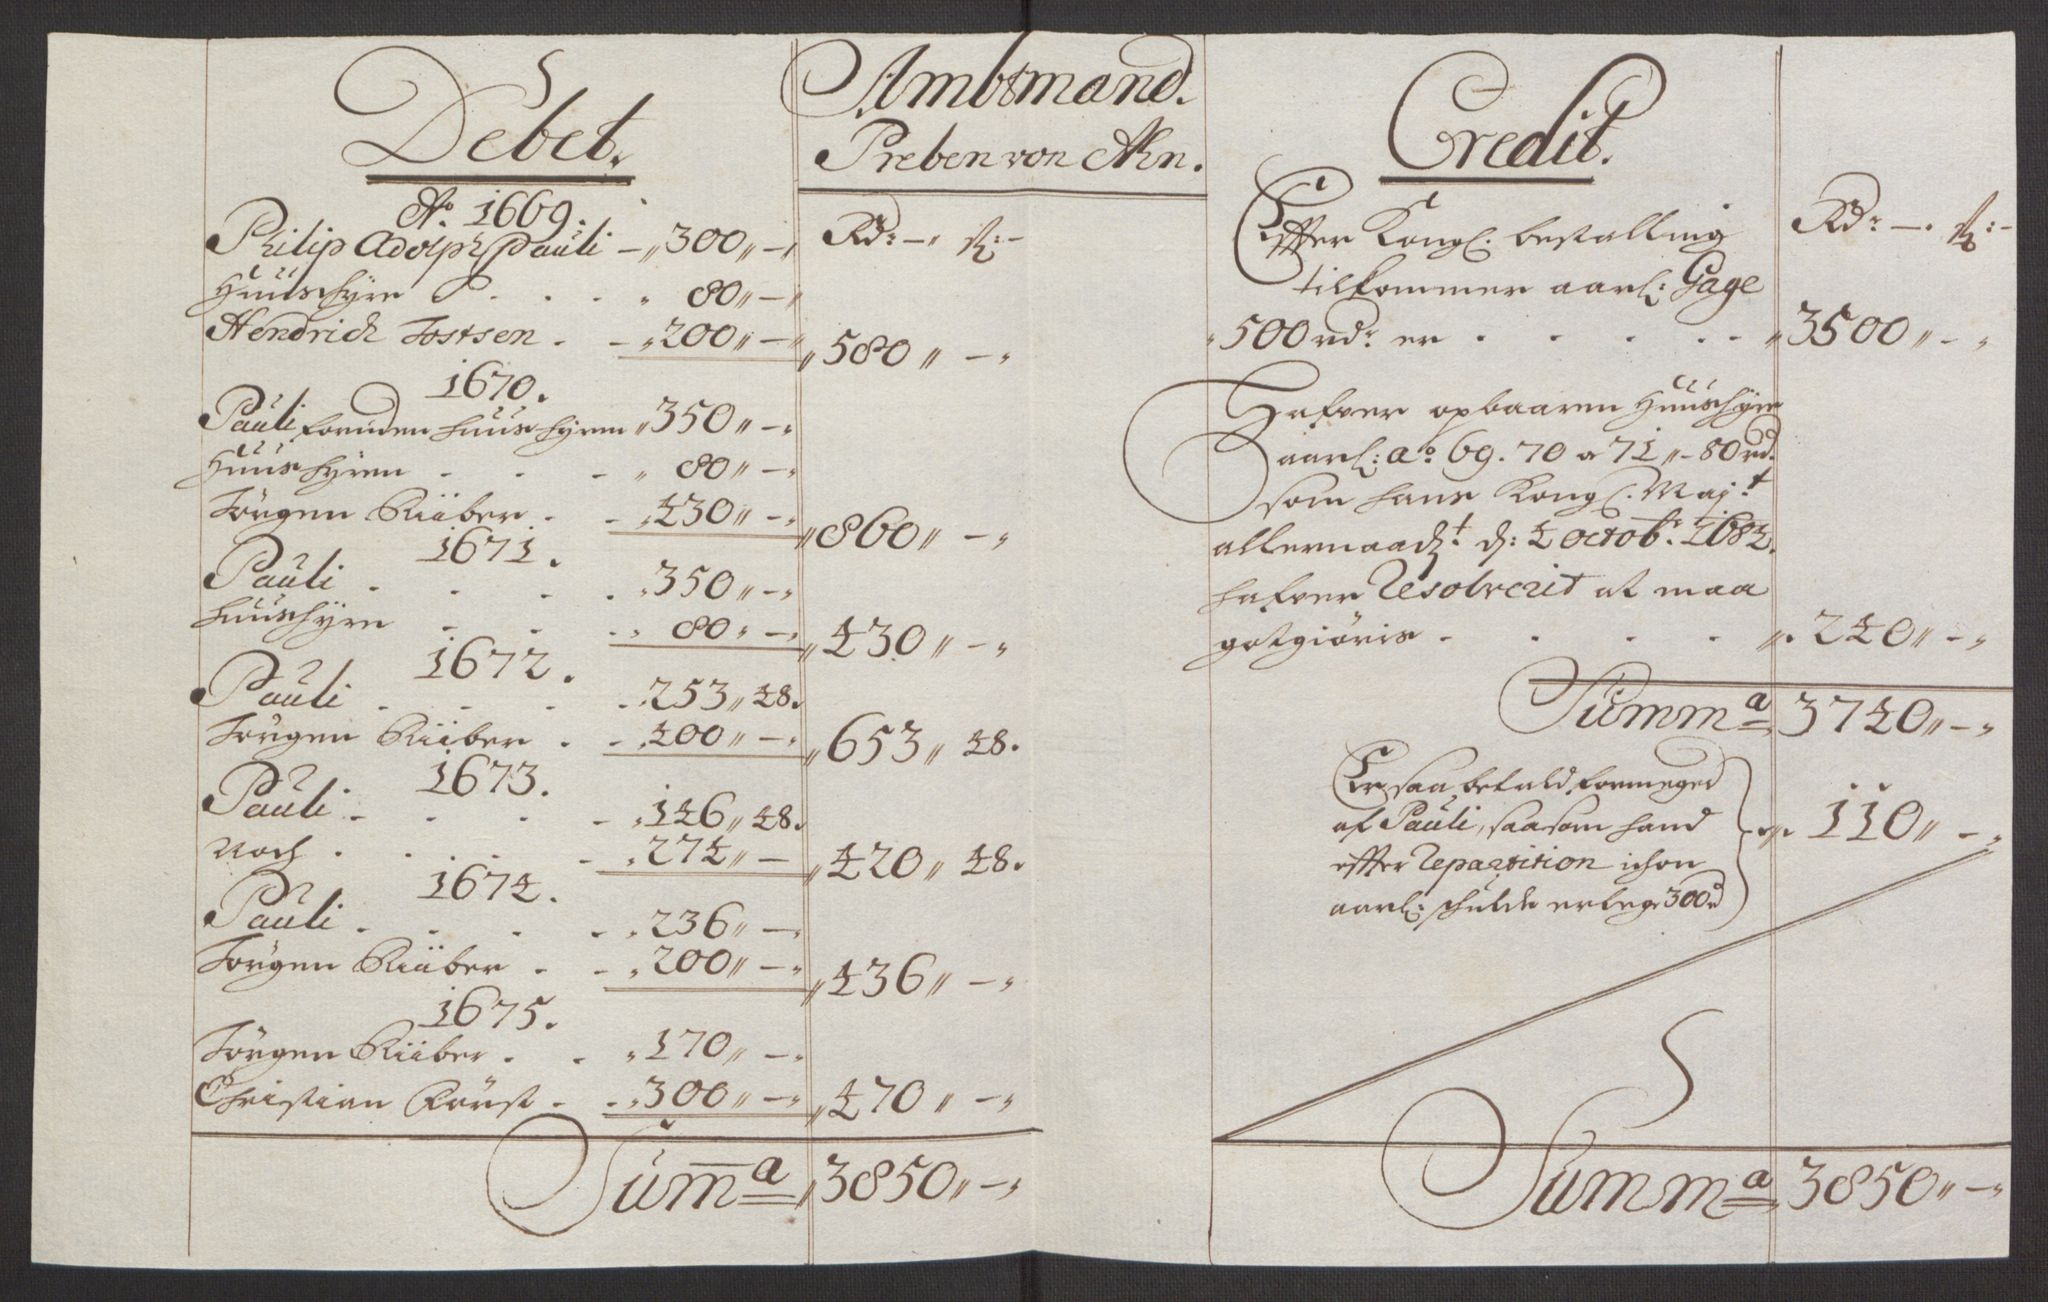 Debet.
Ambtmand.
Preben von Ahn.
Aº 1669. Rdr — ſk: —
Philip Adolph Pauli — 300 „ —
Huuschyre . . . 80 „ —
Hendrich Jostsen . . 200 „ — 580 „ —
1670.
Pauli foruden huuschyren 350 „ —
Huuschyren . . . 80 „ —
Jörgen Rüüber . . 430 „ — 860 „ —
1671.
Pauli . . . . 350 „ —
huuschyre . . . 80 „ — 430 „ —
1672.
Pauli . . . . 253 „ 48.
Jörgen Rüüber . . 400 „ — 653 „ 48.
1673.
Pauli . . . . 146 „ 48.
Noch . . . . 274 „ — 420 „ 48.
1674.
Pauli . . . . 236 „ —
Jörgen Rüüber . . 200 „ — 436 „ —
1675.
Jörgen Rüüber . . 170 „ —
Christian . . 300 „ — 470 „ —
Summa 3850 „ —
Credit.
Effter Kongl: bestalling Rdr — ſk: —
tilkommer aarl: Gage
500 rdr er . . . . 3500 „ —
Hafver opbaaren Huuschyre
aarl: aº 69. 70 a 71 „ 80 rd.
som hans Kongl. Maj:t
allernaadgt. d: 4 octobr. 1684.
hafver Resolverit at maa
gotgiöris . . . . 240 „ —
Summa 3740 „ —
Er saa betald formeged
af Pauli, saasom hand
effter Repartition ichon
aarl: schulde erlege 300 rd 110 „ —
Summa 3850 „ —